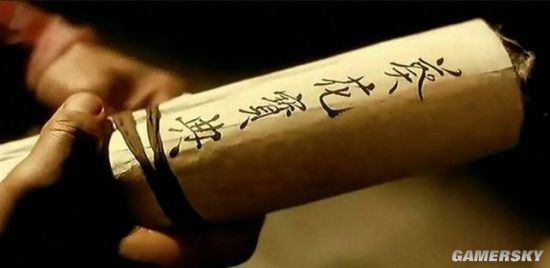 葵花寳典
GAMERSKY